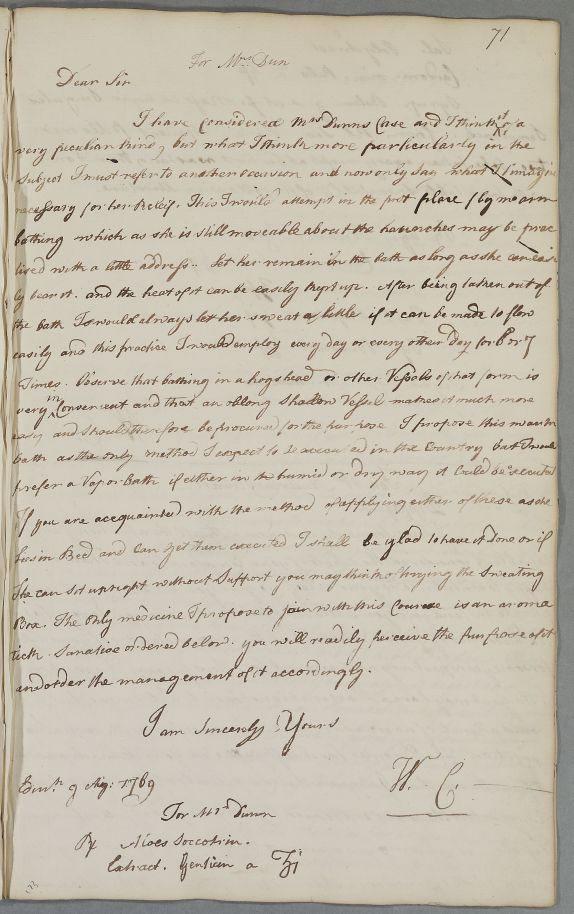 71
For Mrs Dun
Dear Sir
I have considered Mrs Dunns Case and I think it a
very peculiar kind, but what I think more particularly in the
Subject I must refer to another occasion and now only say what I imagine
necessary for her Relief. This I would attempt in the first place by warm
bathing which as she is still moveable about the haunches may be prac
tised with a little address. Let her remain in the bath as long as she can easi
ly bear it. and the heat of it can be easily kept up. After being taken out of
the bath I would always let her sweat a little if it can be made to flow
easily and this practice I would employ every day or every other day for 6 or 7
Times. Observe that bathing in a hogshead or other Vessels of that form is
very inConvenient and that an oblong Shallow Vessel makes it much more
easy and should therefore be procured for the purpose. I propose this warm
bath as the only method I expect to be executed in the Country but I would
prefer a Vapor Bath if either in the humid or dry way it Could be executed
If you are acquainted with the method of applying either of these as she
lies in Bed and Can get them executed I shall be glad to have it done or if
She can sit upright without Support you may think of trying the Sweating
Box. The Only medicine I propose to join with this Course is an aroma
tick Sanative ordered below. you will readily perceive the purpose of it
and order the management of it accordingly.
I am Sincerely Yours
W. C.
Edinr. 9 Aug: 1789
For Mrs Dunn
Rx Aloes Soccotrin.
Extract. Gentian a ʒi